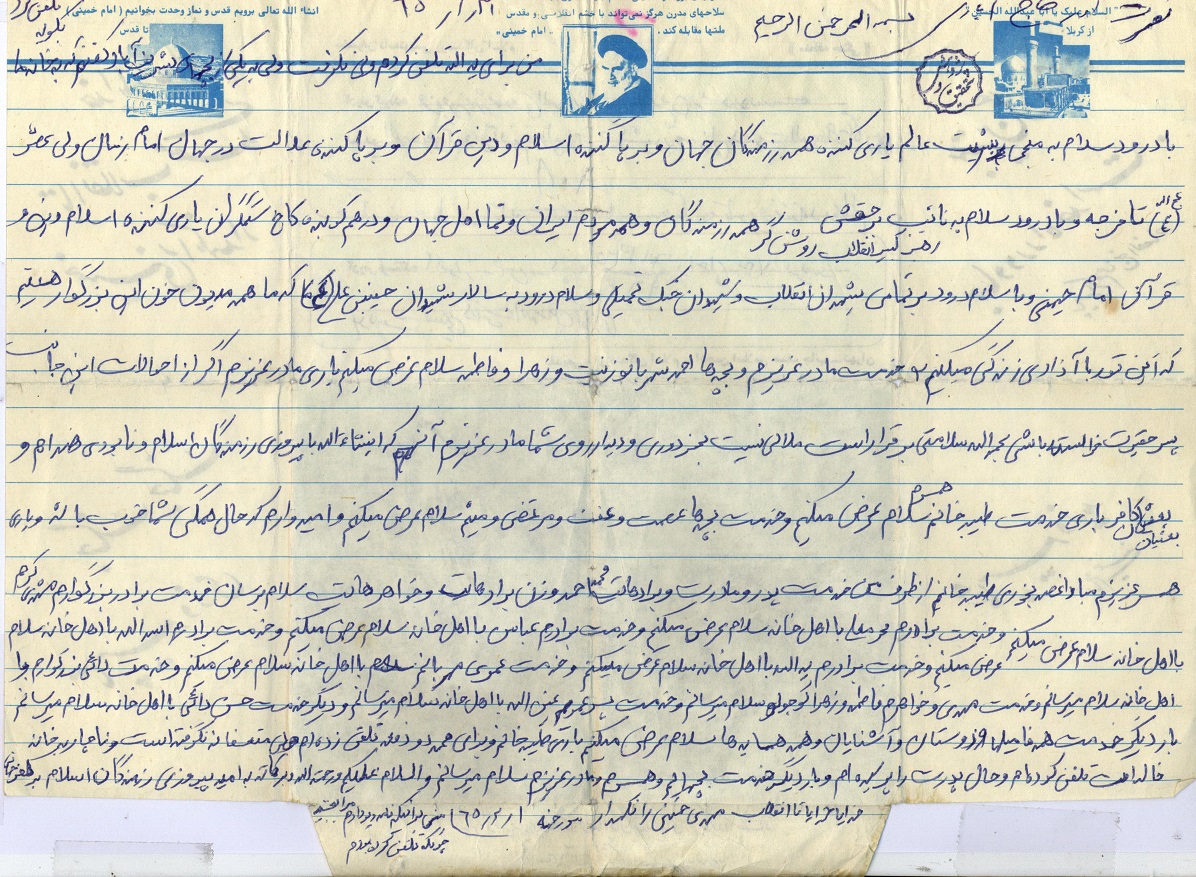 السلام علیک یا ابا عبدالله الحسین
از کربلا
سلاحهای مدرن هرگز نمی‌تواند با خشم انقلابی و مقدس
ملتها مقابله کند. «امام خمینی»
انشاء الله تعالی برویم قدس و نماز وحدت بخوانیم (امام خمینی)
تا قدس
بسمه الرحمن الرحیم
من برای یداله تلفن کردم ولی نگرفت ولی به یکی از
با درود سلام به منجی بشریت عالم یاری کننده همه رزمندگان جهان و برپا کننده اسلام و دین قرآن و برپا کننده عدالت در جهان امام زمان ولی عصر
(عج) تا فرجه و با درود سلام به نائب برحقش
رهبر کبیر انقلاب روشن گر همه رزمندگان و همه مردم ایران و تما اهل جهان و درهم کوبنده کاخ ستمگران یاری کننده اسلام دین و
قرآن امام خمینی و با سلام درود بر تمامی شهدای انقلاب و شهیدان جنگ تحمیلی و سلام درود به سالار شهیدان حسین بن علی (ع) که ما همه مدیون خون این بزرگوار هستیم
که این تور با آذادی زندگی میکنیم خدمت مادر عزیزم و بچه‌ها احمد شهربانو زینب و زهرا و فاطمه سلام عرض میکنم باری مادر عزیزم اگر از احوالات این جانب
پسر حقیرت خواسته باشی بحمداله سلامتی برقرار است ملالی نیست بجز دوری و دیدار روی شما مادر عزیزم آنهم که انشاءاله با پیروزی رزمندگان اسلام و نابودی صدام و
کافر باری خدمت طیبه خانم همسرم سلام عرض میکنم و خدمت بچه‌ها عصمت و عفت و مرتضی و میثم سلام عرض میکنم و امیدوارم که حال همگی شما خوب باشد و باری
همسر عزیزم مبادا غصه بخوری طیبه خانم از طرف من خدمت پدر و مادرت و برادرهایت محمد احمد و زن برادرهایت و خواهرهایت سلام برسان خدمت برادر بزرگوارم
با اهل خانه سلام عرض میکنم و خدمت برادرم با اهل خانه سلام عرض میکنم و خدمت برادرم عباس با اهل خانه سلام عرض میکنم و خدمت برادرم اسداله با اهل خانه سلام
عرض میکنم و خدمت برادرم یداله با اهل خانه سلام عرض میکنم و خدمت عموی با اهل خانه سلام عرض میکنم و خدمت دائی بزرگوارم با
اهل خانه سلام میرسانم و خدمت مهدی و خواهرم فاطمه و زهرا کوچولو سلام میرسانم و خدمت پسر عمویم عین اله با اهل خانه سلام میرسانم و دیگر خدمت حسن دائی با اهل خانه سلام میرسانم
بار دیگر خدمت همه فامیلها و دوستان و آشنایان و همه همسایه‌ها سلام عرض میکنم باری طیبه جانم برای احمد دو دفعه تلفن زده‌ام ولی متعسفانه نگرفته است و ناچار به خانه
خاله‌ات تلفن کرده‌ام و حال پدرت را پرسیده‌ام و بار دیگر خدمت بچه‌هایم و همسرم و مادر عزیزم سلام میرسانم والسلام علیکم و رحمت اله و برکاته به امید پیروزی رزمندگان اسلام بر کفر
خدایا خدایا تا انقلاب مهدی خمینی را نگهدار مورخه
چونکه تلفن کرده بودم